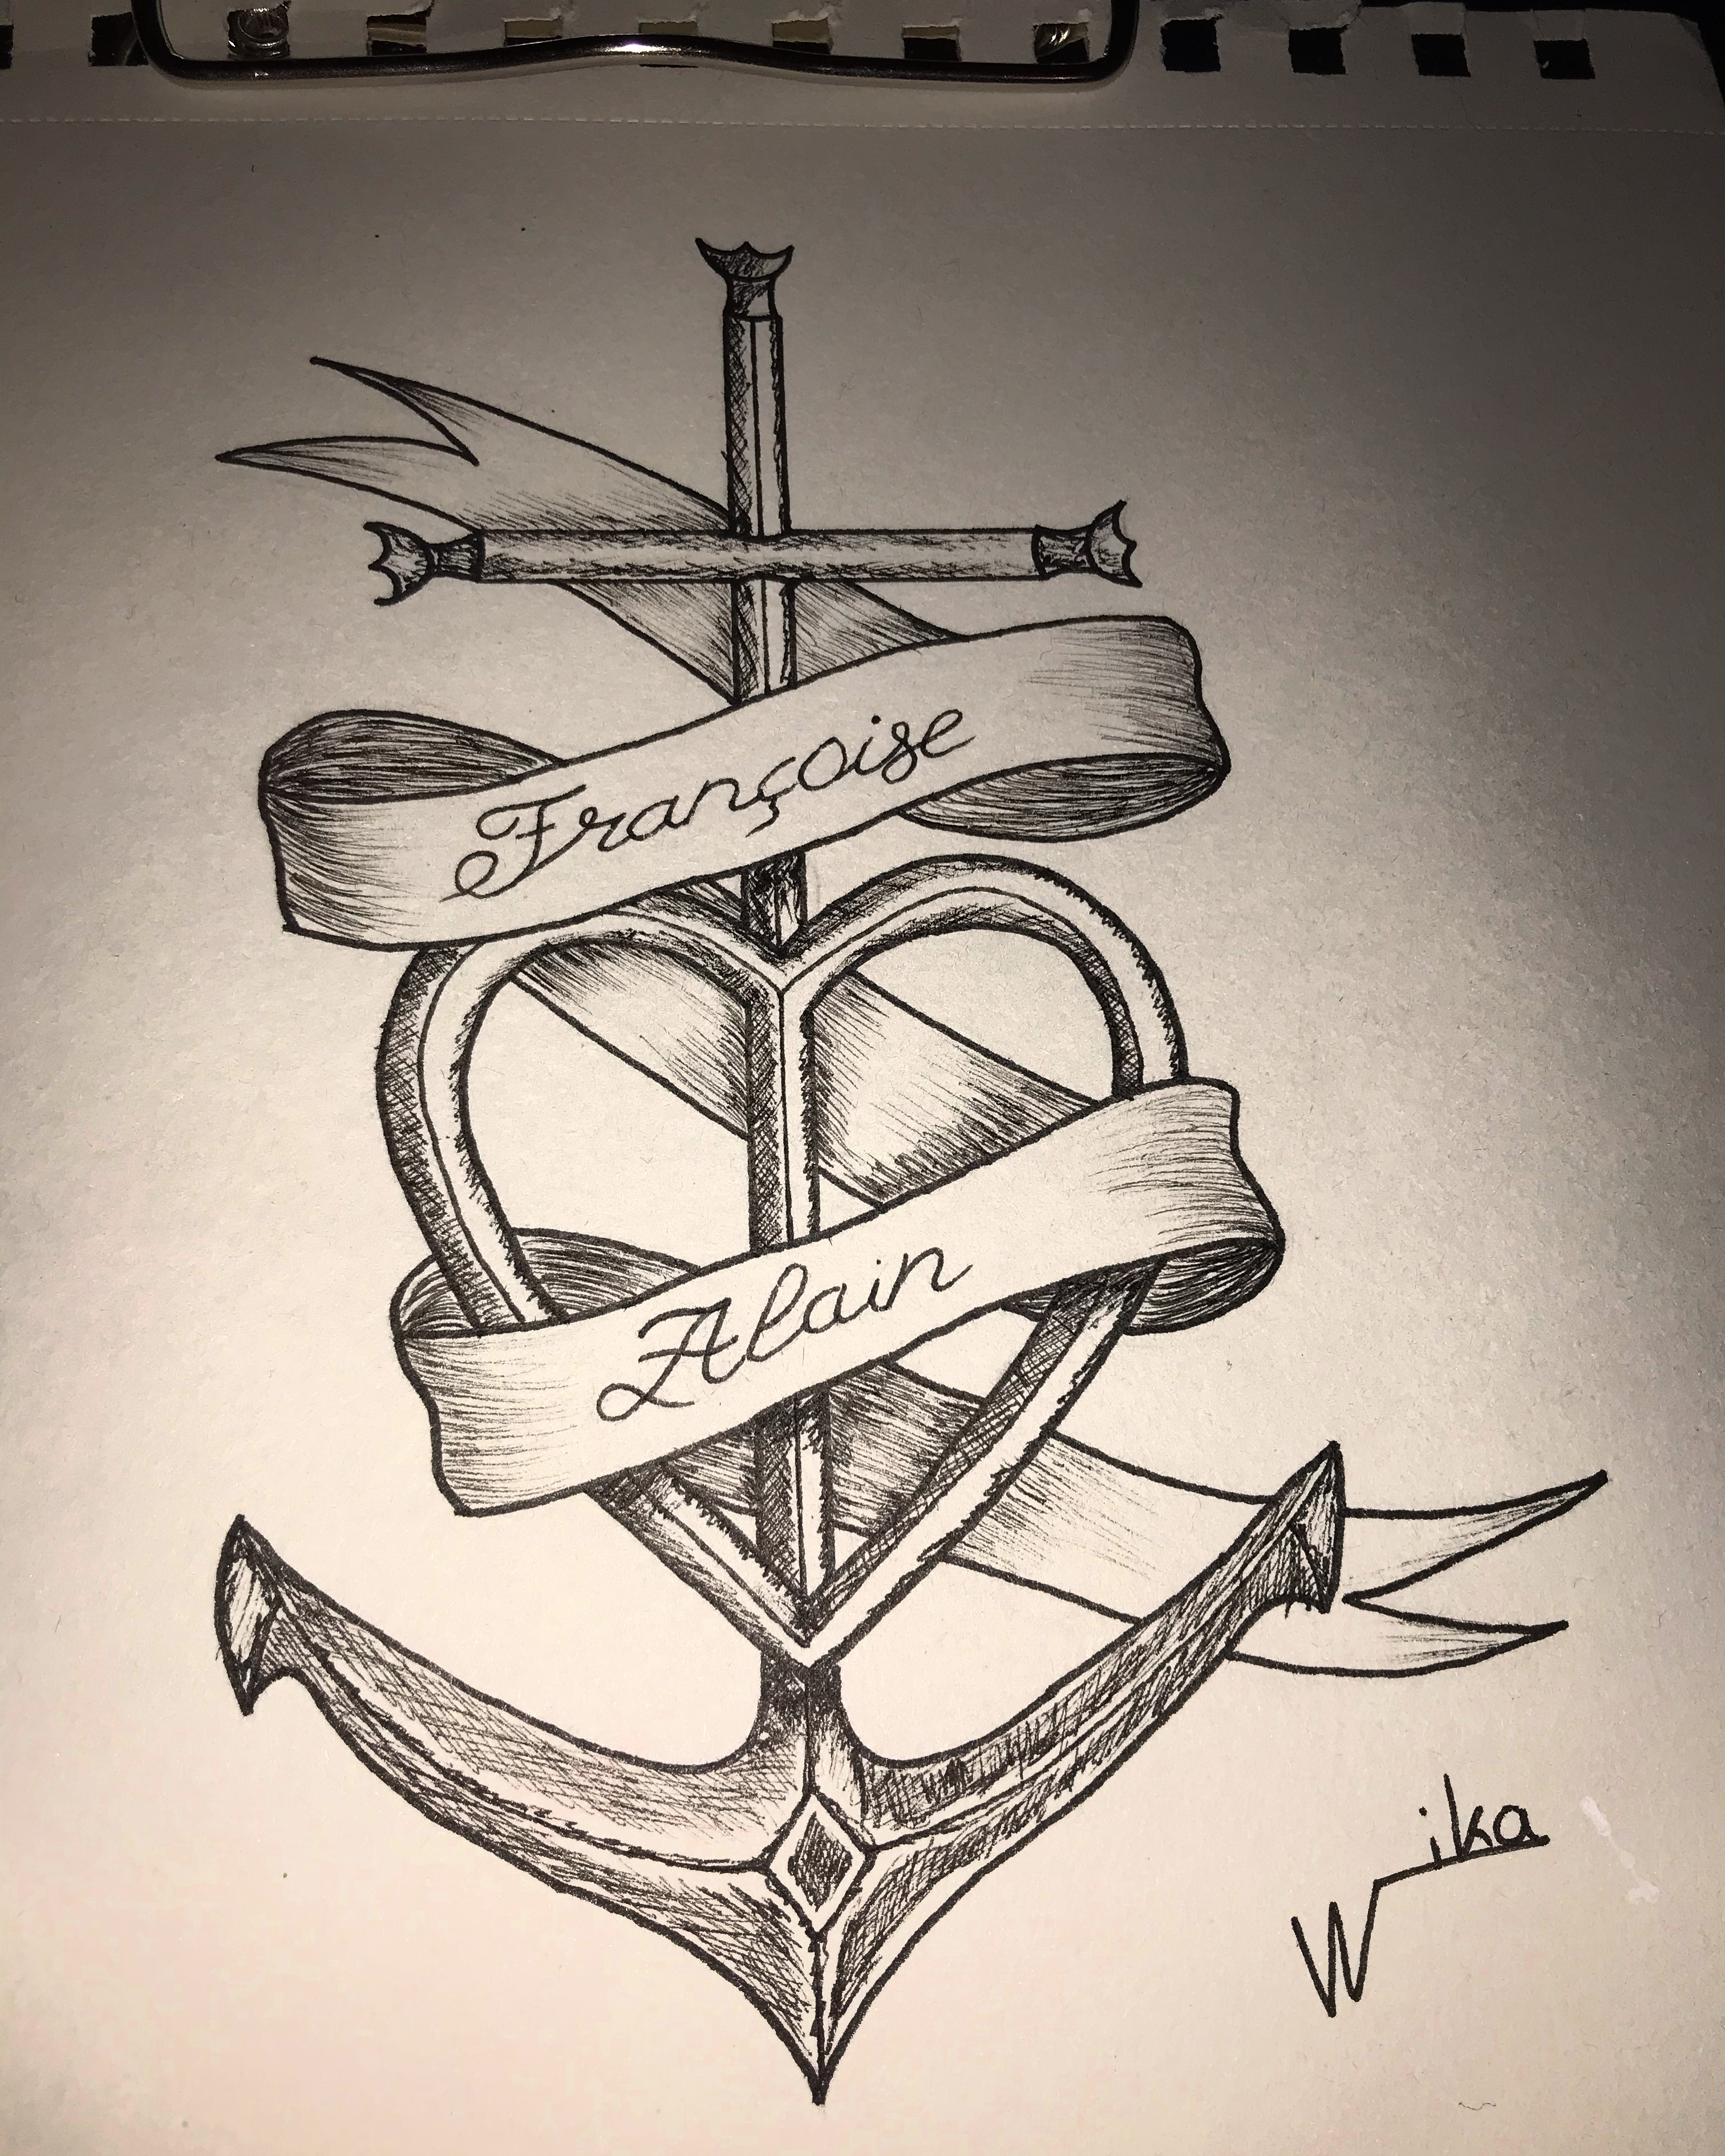 Françoise
Alain
Wika